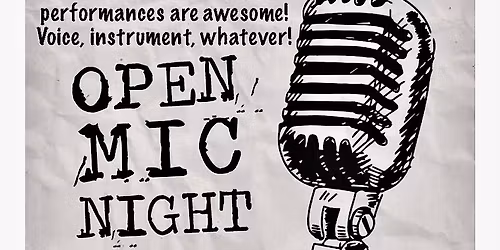 performances are awesome!
Voice, instrument, whatever!
OPEN
MIC
NIGHT